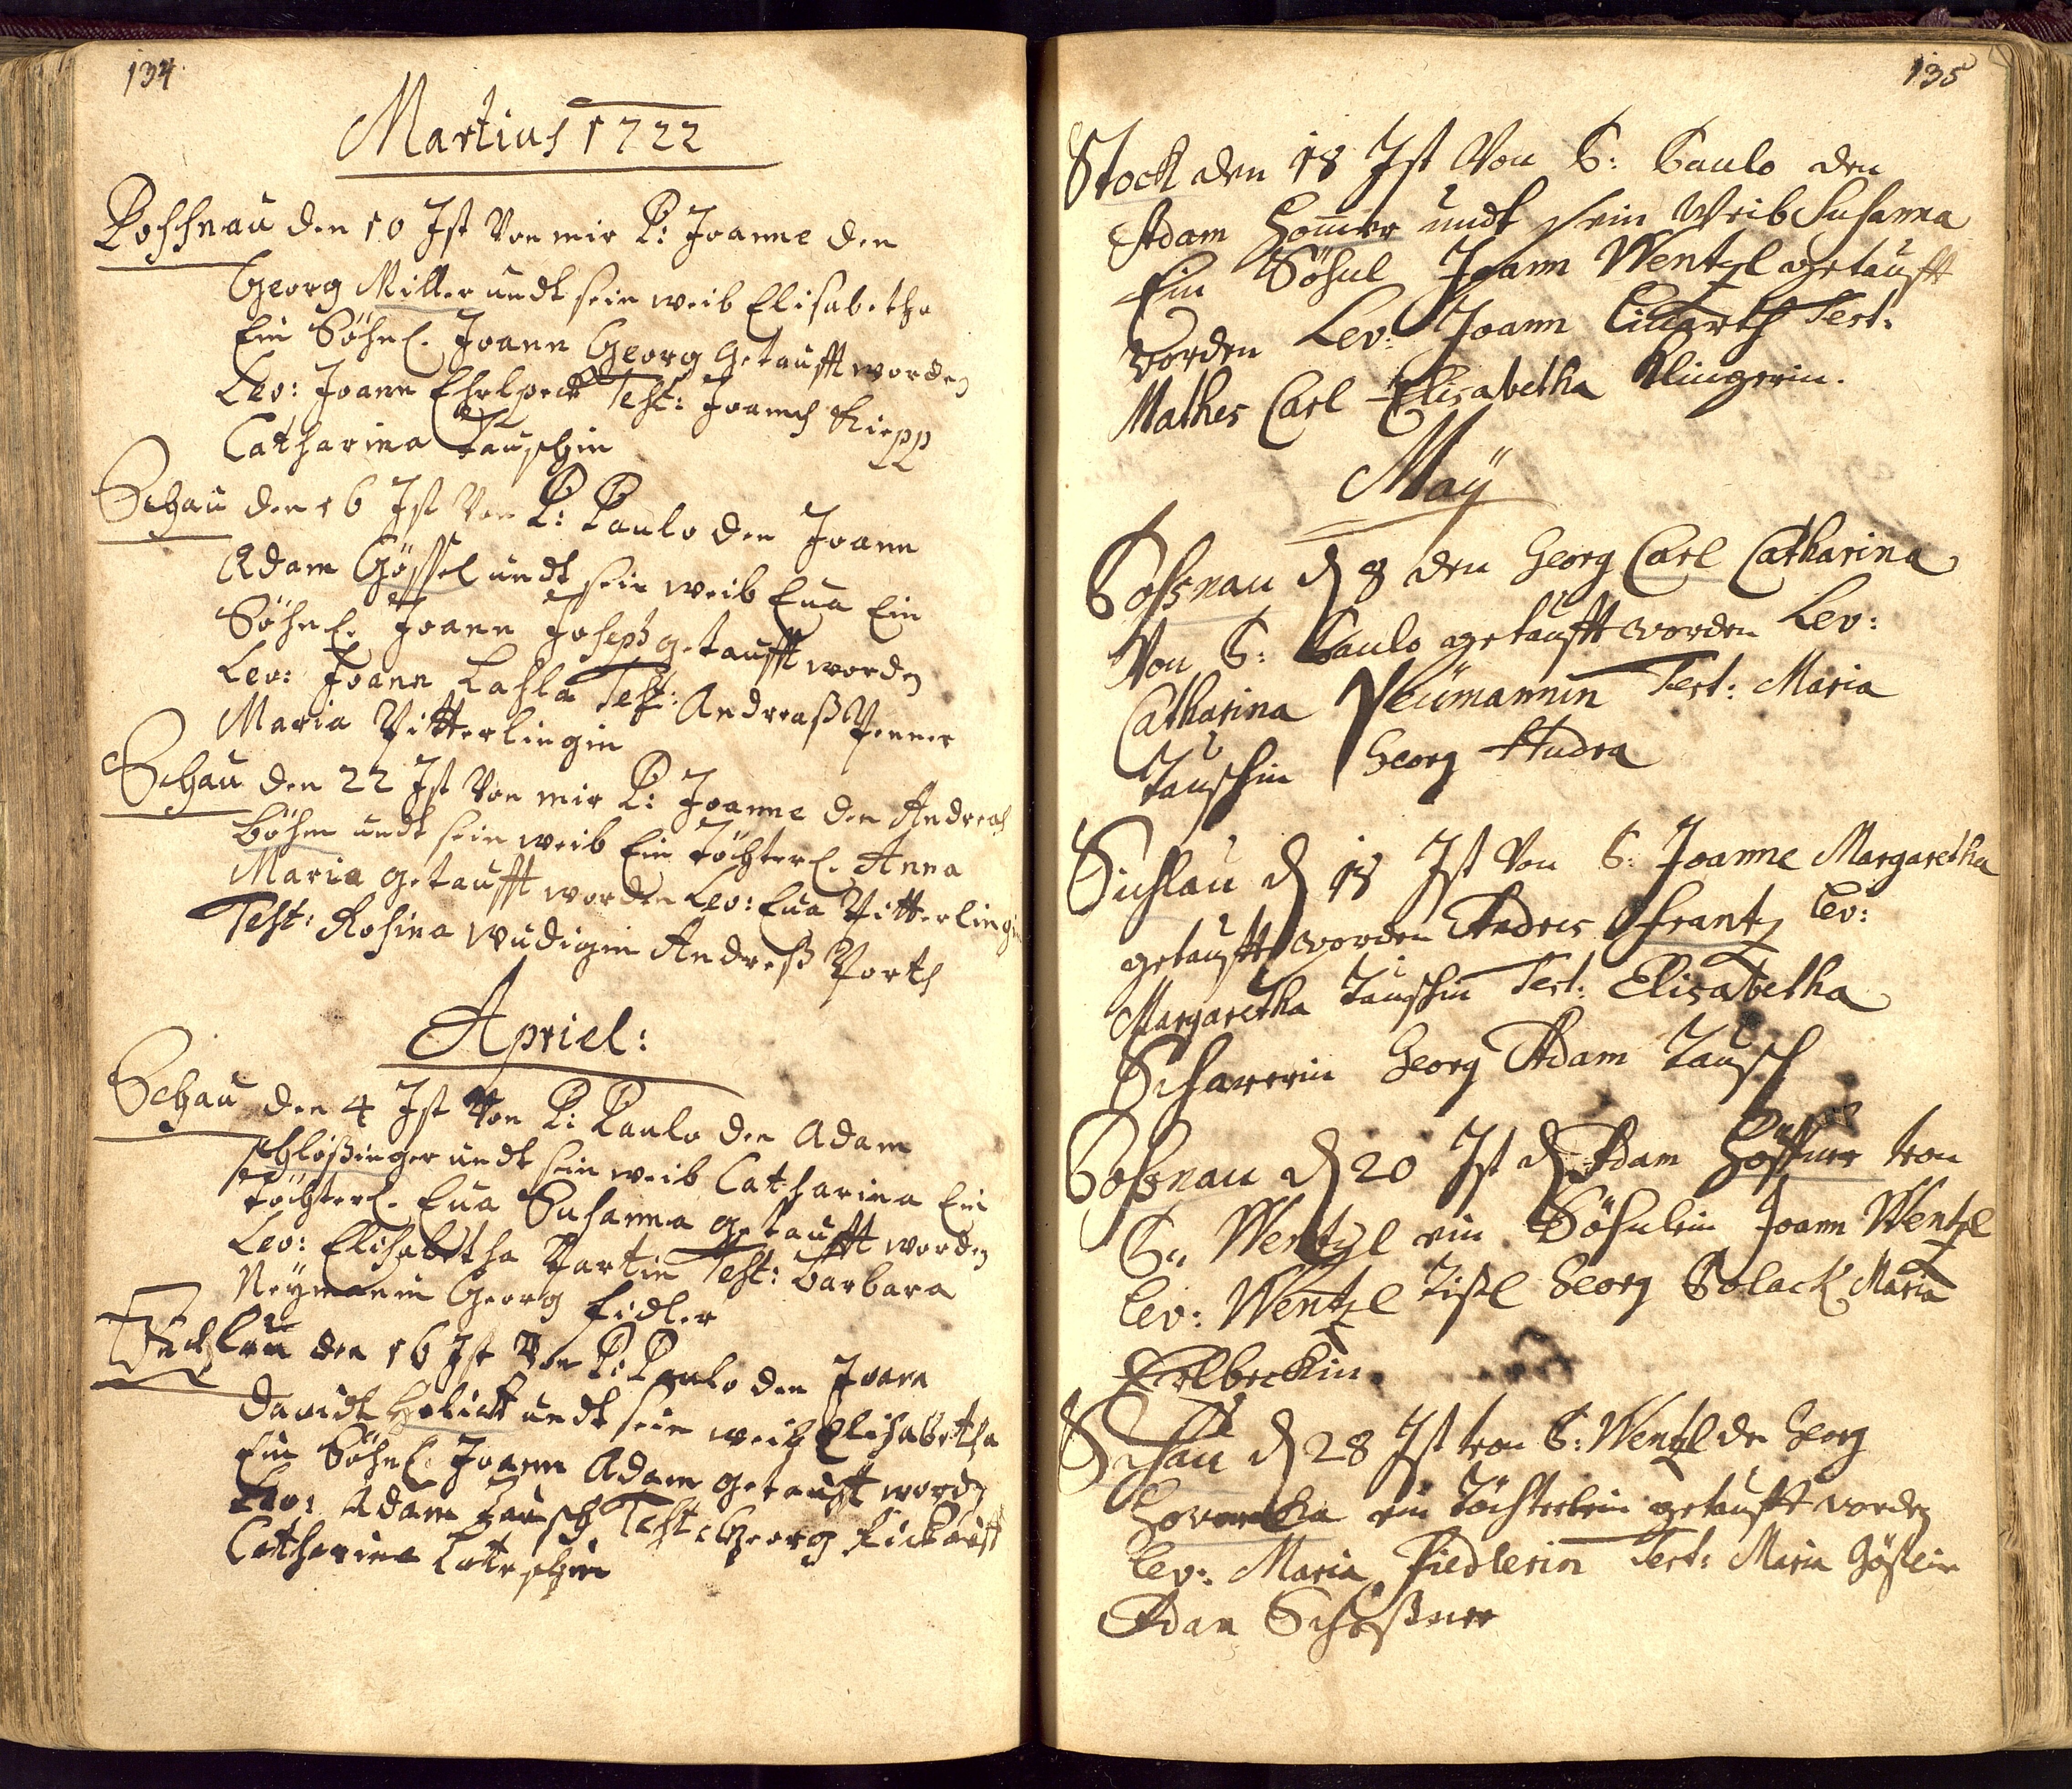 134
Martius 1722
Possnau den 10 Ist Von mir P: Joanne den
Georg Miller undt sein weib Elisabetha
Ein Söhnl. Joann Georg getaufft worden
Lev: Joann Ehrlpeck Test: Joannes Riepp
Catharina Tauschin
Schau den 16 Ist Von P: Paulo den Joann
Adam Gössel undt sein weib Eva Ein
Söhnl. Joann Joseph getaufft worden
Lev: Joann Lahla Test: Andreaß Penner
Maria Pitterlingin
Schau den 22 Ist Von mir P: Joanne den Andreas
Böhm undt sein weib Ein Töchterl. Anna
Maria getaufft worden Lev: Eva Pitterlingin
Test: Rosina Wudigin Andreß Porth
Apriel:
Schau den 4 Ist Von P: Paulo den Adam
Schloßinger undt sein weib Catharina Ein
Töchterl. Eva Susanna getaufft worden
Lev: Elisabetha Partin Test: Barbara
Neymanin Georg Fidler
den 16 Ist Von P: Paulo den Joann
Davidt Holick undt sein weib Elisabetha
Ein Söhnl. Joann Adam getaufft worden
Lev: Adam Tausch Test: Georg
Catharina
135
Stock den 18 Ist Von P: Paulo den
Adam Hommer undt sein Weib Susanna
Ein Söhnl Joann Wentzl getaufft
worden Lev: Joann Test:
Mathes Carl Elisabetha Klingerin.
Maÿ
Possnau d 8 den Georg Carl Catharina
Von P: Paulo getaufft worden Lev:
Catharina Neümannin Test: Maria
Tauschin Georg Hudra
Sichlau d 18 Ist Von P: Joanne Margaretha
getaufft worden Andres Frantz Lev:
Margaretha Tauschin Test: Elisabetha
Scharerin Georg Adam Tausch
Possnau d 20 Ist d Adam von
P. Wentzl ein Söhnlein Joann Wentzl
Lev: Wentzl Tißl Georg Polack Maria
Erlbeckin.
Schau d 28 Ist von P: Wentzl den Georg
ein Töchterlein getaufft worden
Lev: Maria Fiedlerin Test: Maria Gößlin
Adam